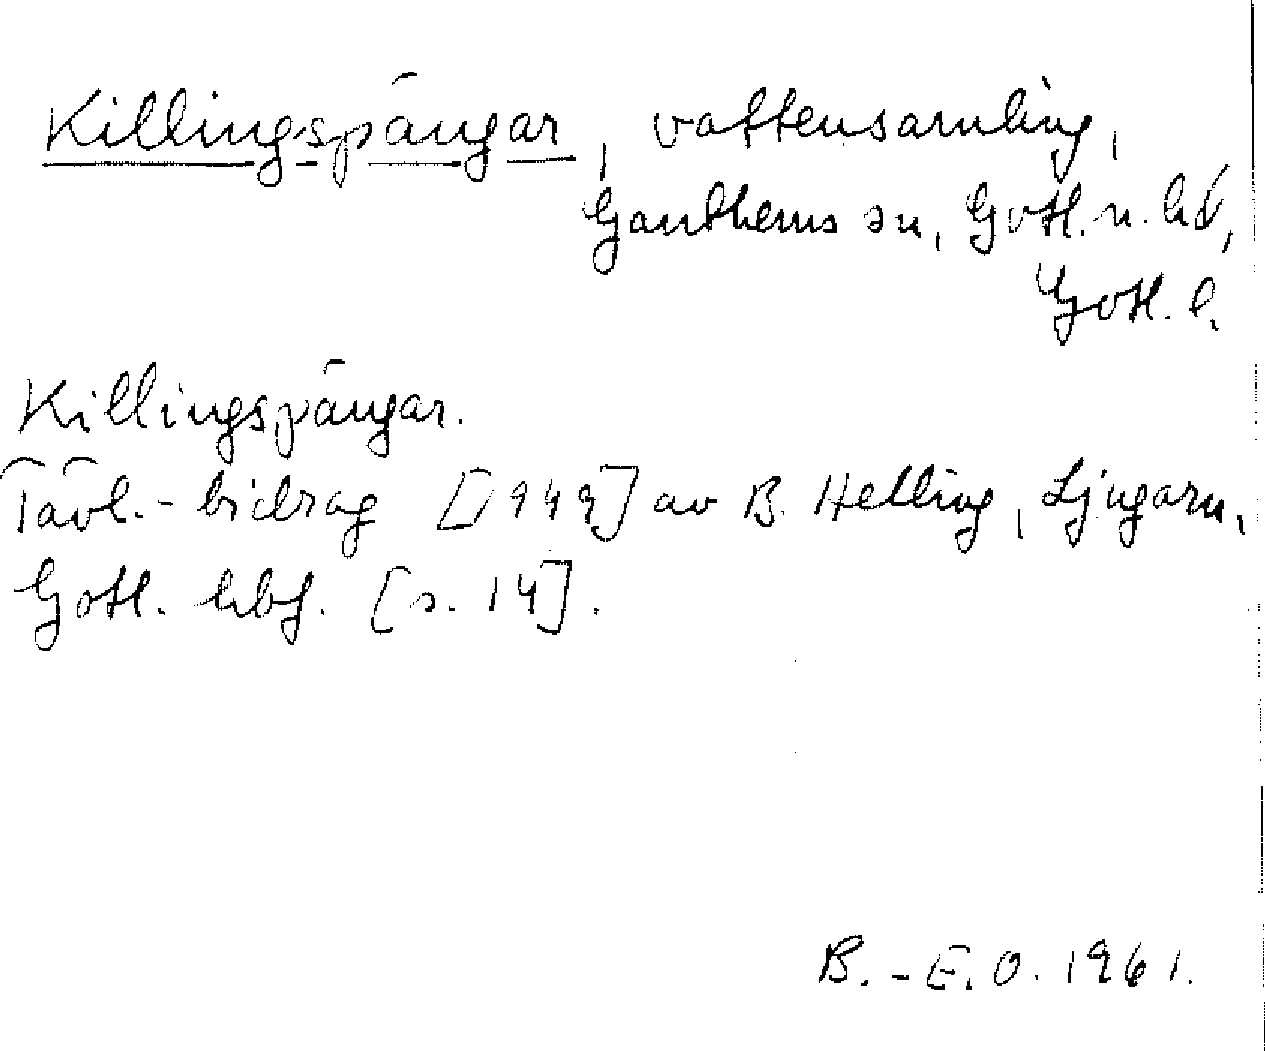 Killingspängar, vattensamling,
Ganthems sn, Gotl. n. hd,
Gotl. l.
Killingspängar.
Tävl.-bidrag [1949] av B. Helling, Ljugarn,
Gotl. hbf. [s. 14].
B.-E.O. 1961.